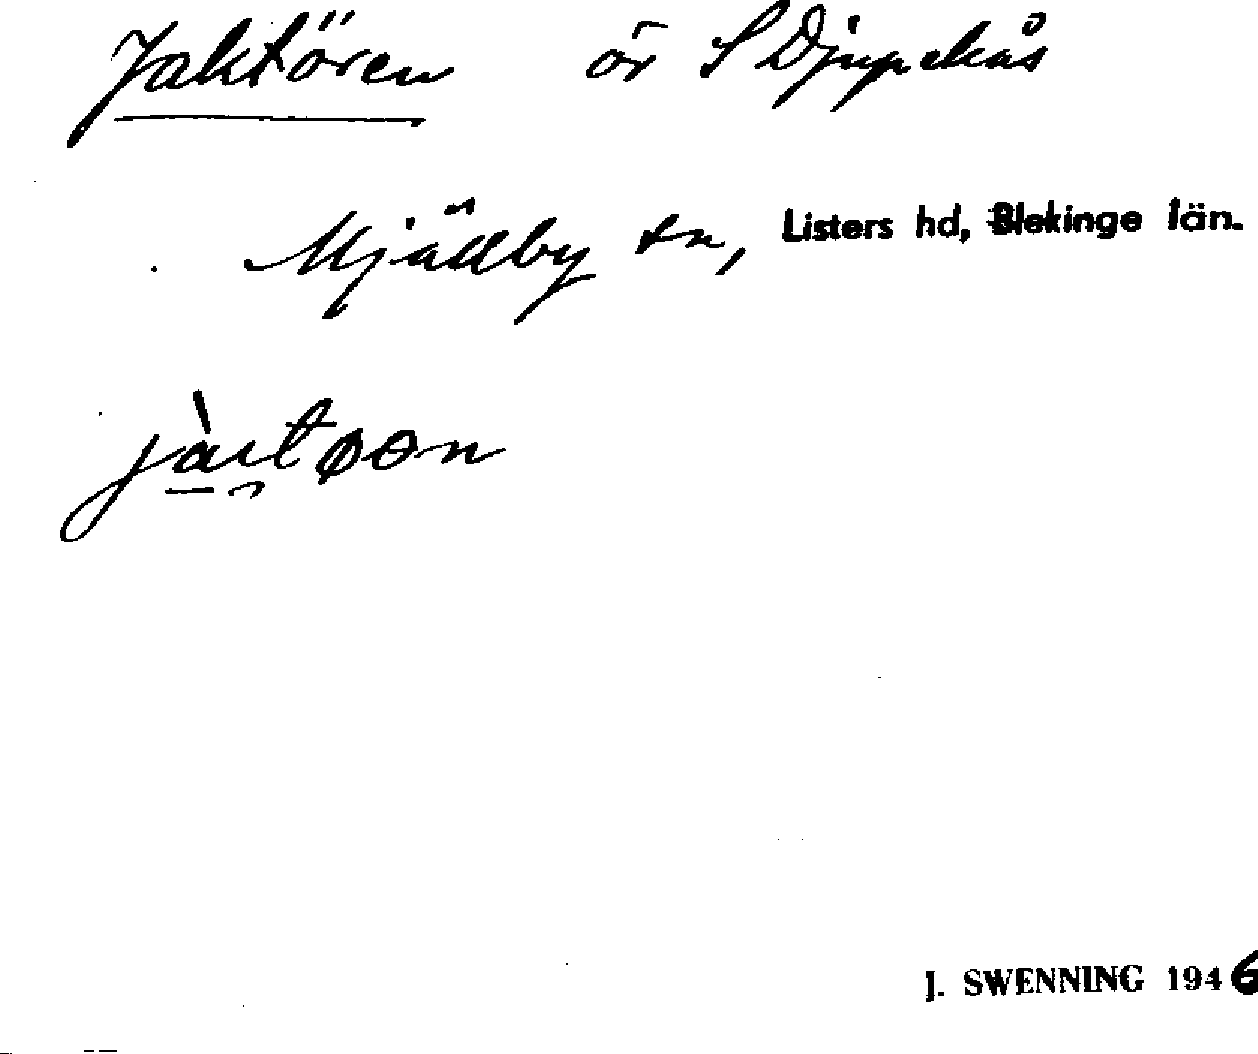 Jaktören ör S Djupekås
Mjällby sn, Listers hd, Blekinge län.
J. SWENNING 1946